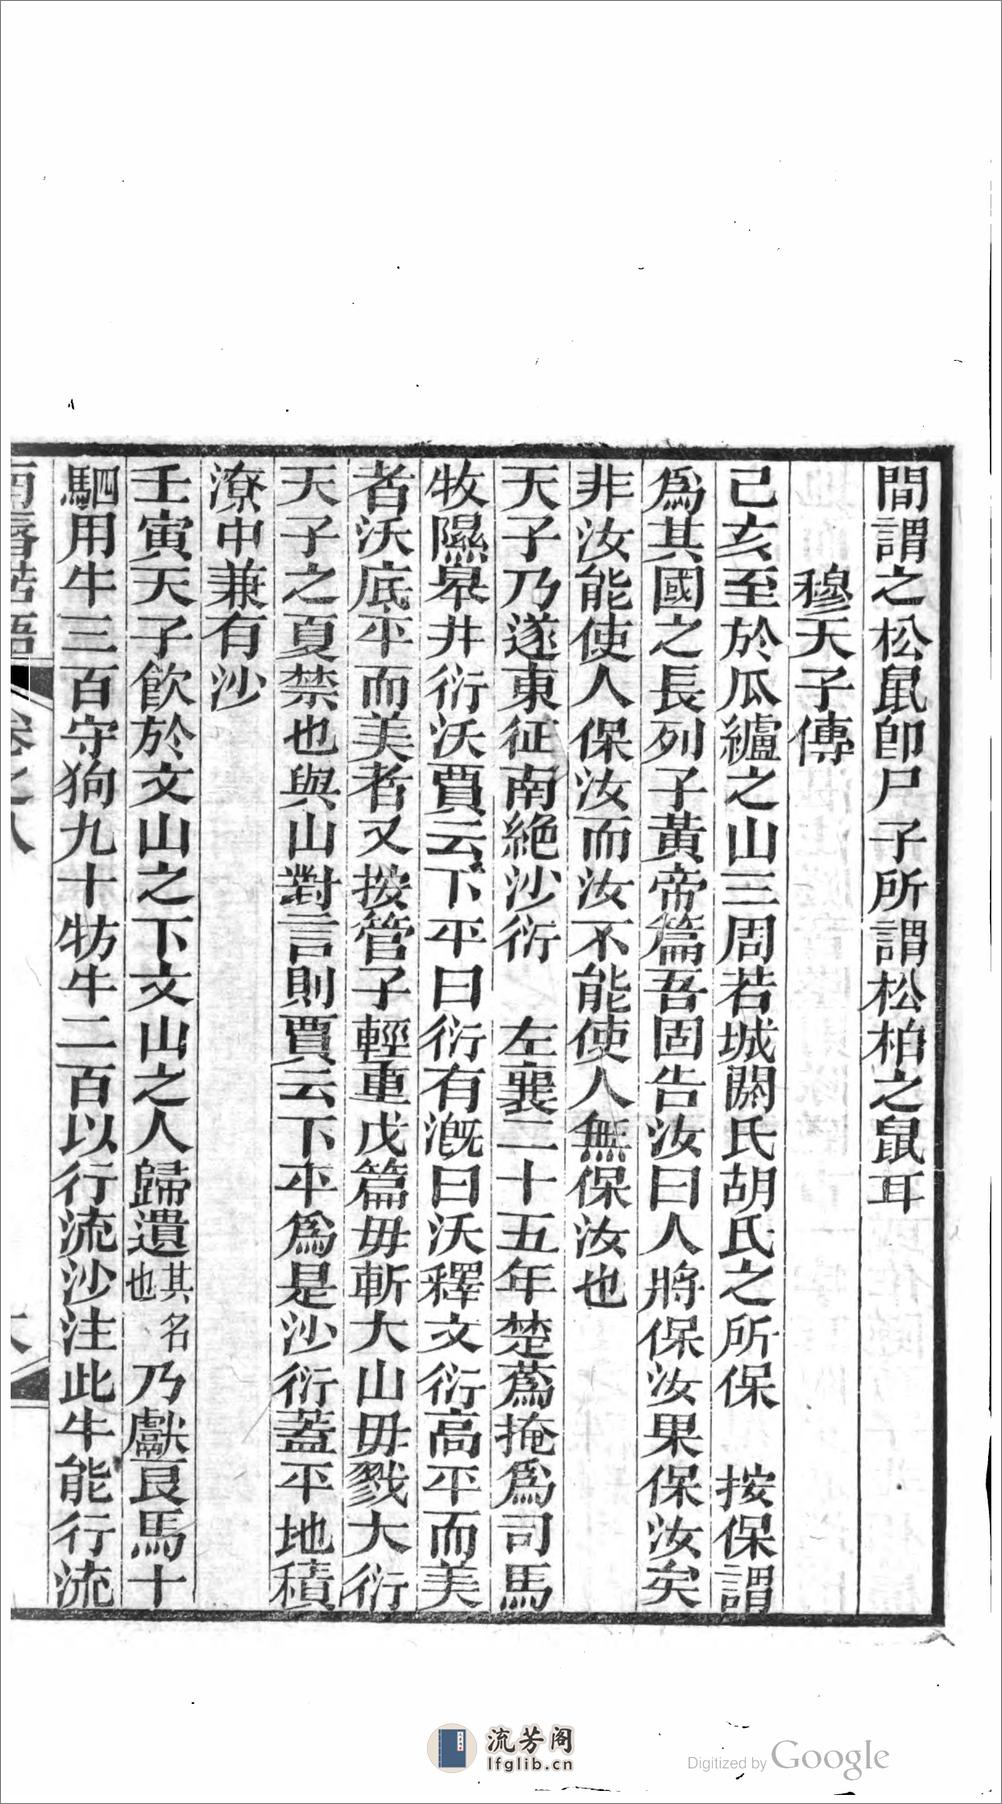 間謂之松鼠卽尸子所謂松柏之鼠耳
穆天子傳
己亥至於瓜纑之山三周若城閼氏胡氏之所保　按保謂
爲其國之長列子黃帝篇吾固告汝曰人將保汝果保汝矣
非汝能使人保汝而汝不能使人無保汝也
天子乃遂東征南絶沙衍　左襄二十五年楚蒍掩爲司馬
牧隰皋井衍沃賈云下平曰衍有漑曰沃釋文衍高平而美
者沃底平而美者又按管子輕重戊篇毋斬大山毋戮大衍
天子之夏禁也與山對言則賈云下平爲是沙衍蓋平地積
潦中兼有沙
壬寅天子飮於文山之下文山之人歸遺其名也乃獻良馬十
駟用牛三百守狗九十牥牛二百以行流沙注此牛能行流
卷之八
流芳阁
lfglib.cn
Digitized by Google